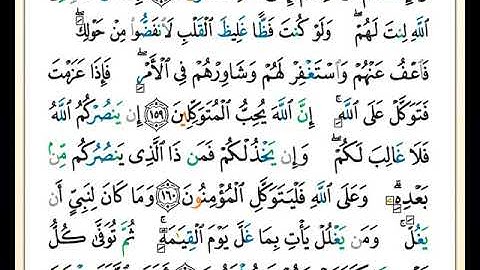 ٱللَّهِ لِنتَ لَهُمْ ۖ وَلَوْ كُنتَ فَظًّا غَلِيظَ ٱلْقَلْبِ لَٱنفَضُّوا۟ مِنْ حَوْلِكَ ۖ
فَٱعْفُ عَنْهُمْ وَٱسْتَغْفِرْ لَهُمْ وَشَاوِرْهُمْ فِى ٱلْأَمْرِ ۖ فَإِذَا عَزَمْتَ
فَتَوَكَّلْ عَلَى ٱللَّهِ ۚ إِنَّ ٱللَّهَ يُحِبُّ ٱلْمُتَوَكِّلِينَ ١٥٩ إِن يَنصُرْكُمُ ٱللَّهُ
فَلَا غَالِبَ لَكُمْ ۖ وَإِن يَخْذُلْكُمْ فَمَن ذَا ٱلَّذِى يَنصُرُكُم مِّنۢ
بَعْدِهِۦ ۗ وَعَلَى ٱللَّهِ فَلْيَتَوَكَّلِ ٱلْمُؤْمِنُونَ ١٦٠ وَمَا كَانَ لِنَبِىٍّ أَن
يَغُلَّ ۚ وَمَن يَغْلُلْ يَأْتِ بِمَا غَلَّ يَوْمَ ٱلْقِيَـٰمَةِ ۚ ثُمَّ تُوَفَّىٰ كُلُّ